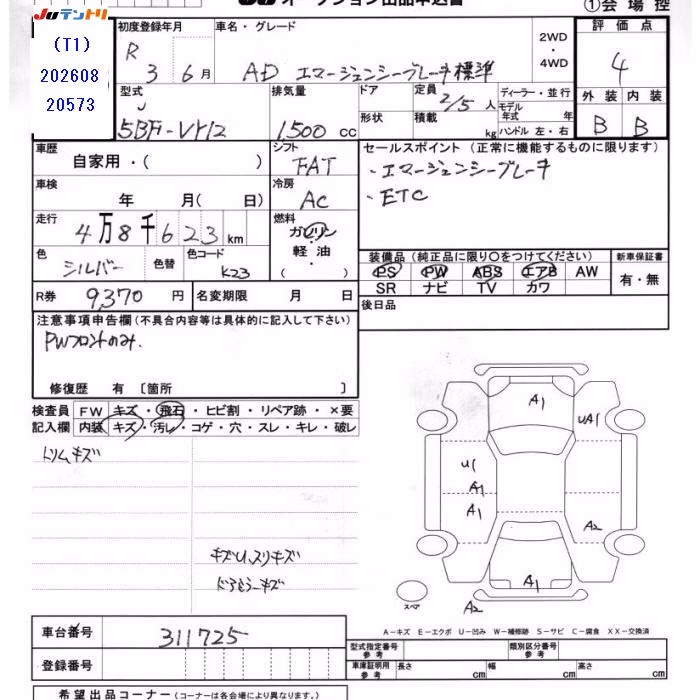 Juテントリ オークション出品申込書 ①会場控
(T1)
202608
20573
初度登録年月 車名・グレード 2WD・4WD 評価点
R 3 6月 AD エマージェンシーブレーキ標準 4
型式 排気量 ドア 定員 2/5人 ディーラー・並行 外装 内装
5BF-VY12 1,500cc 形状 積載 kg モデル年式 年 B B
ハンドル 左・右
車歴 自家用・( ) シフト FAT セールスポイント(正常に機能するものに限ります)
車検 年 月(日) 冷房 AC ・エマージェンシーブレーキ
・ETC
走行 4万8千623km 燃料 ガソリン・軽油・( )
色 シルバー 色替 色コード K23
装備品(純正品に限り○をつけてください) 新車保証書
PS PW ABS エアB AW 有・無
SR ナビ TV カワ
R券 9,370円 名変期限 月 日 後日品
注意事項申告欄(不具合内容等は具体的に記入して下さい)
PWフロントのみ.
修復歴 有〔箇所 〕
検査員 FW キズ・飛石・ヒビ割・リペア跡・×要
記入欄 内装 キズ・汚レ・コゲ・穴・スレ・キレ・破レ
トリムキズ
キズU、スリキズ
A1
UA1
U1
A1
A1
A2
A1
スペア A2
A-キズ E-エクボ U-凹み W-補修跡 S-サビ C-腐食 XX-交換済
車台番号 311725
型式指定番号 参考 類別区分番号 参考
登録番号 車庫証明用 参考 長さ cm 幅 cm 高さ cm
希望出品コーナー(コーナーは各会場により異なります。)